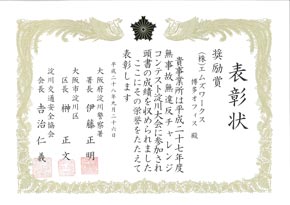 表彰状
奨励賞
(株)エムズワークス
博多オフィス 殿
貴事業所は平成二十七年度
無事故無違反チャレンジ
コンテスト淀川大会に参加され
頭書の成績を収められました
ここにその栄誉をたたえて
表彰します
平成二十八年九月二十六日
大阪府淀川警察署
署長 伊藤正明
大阪市淀川区
区長 榊 正文
淀川交通安全協会
会長 吉治仁義